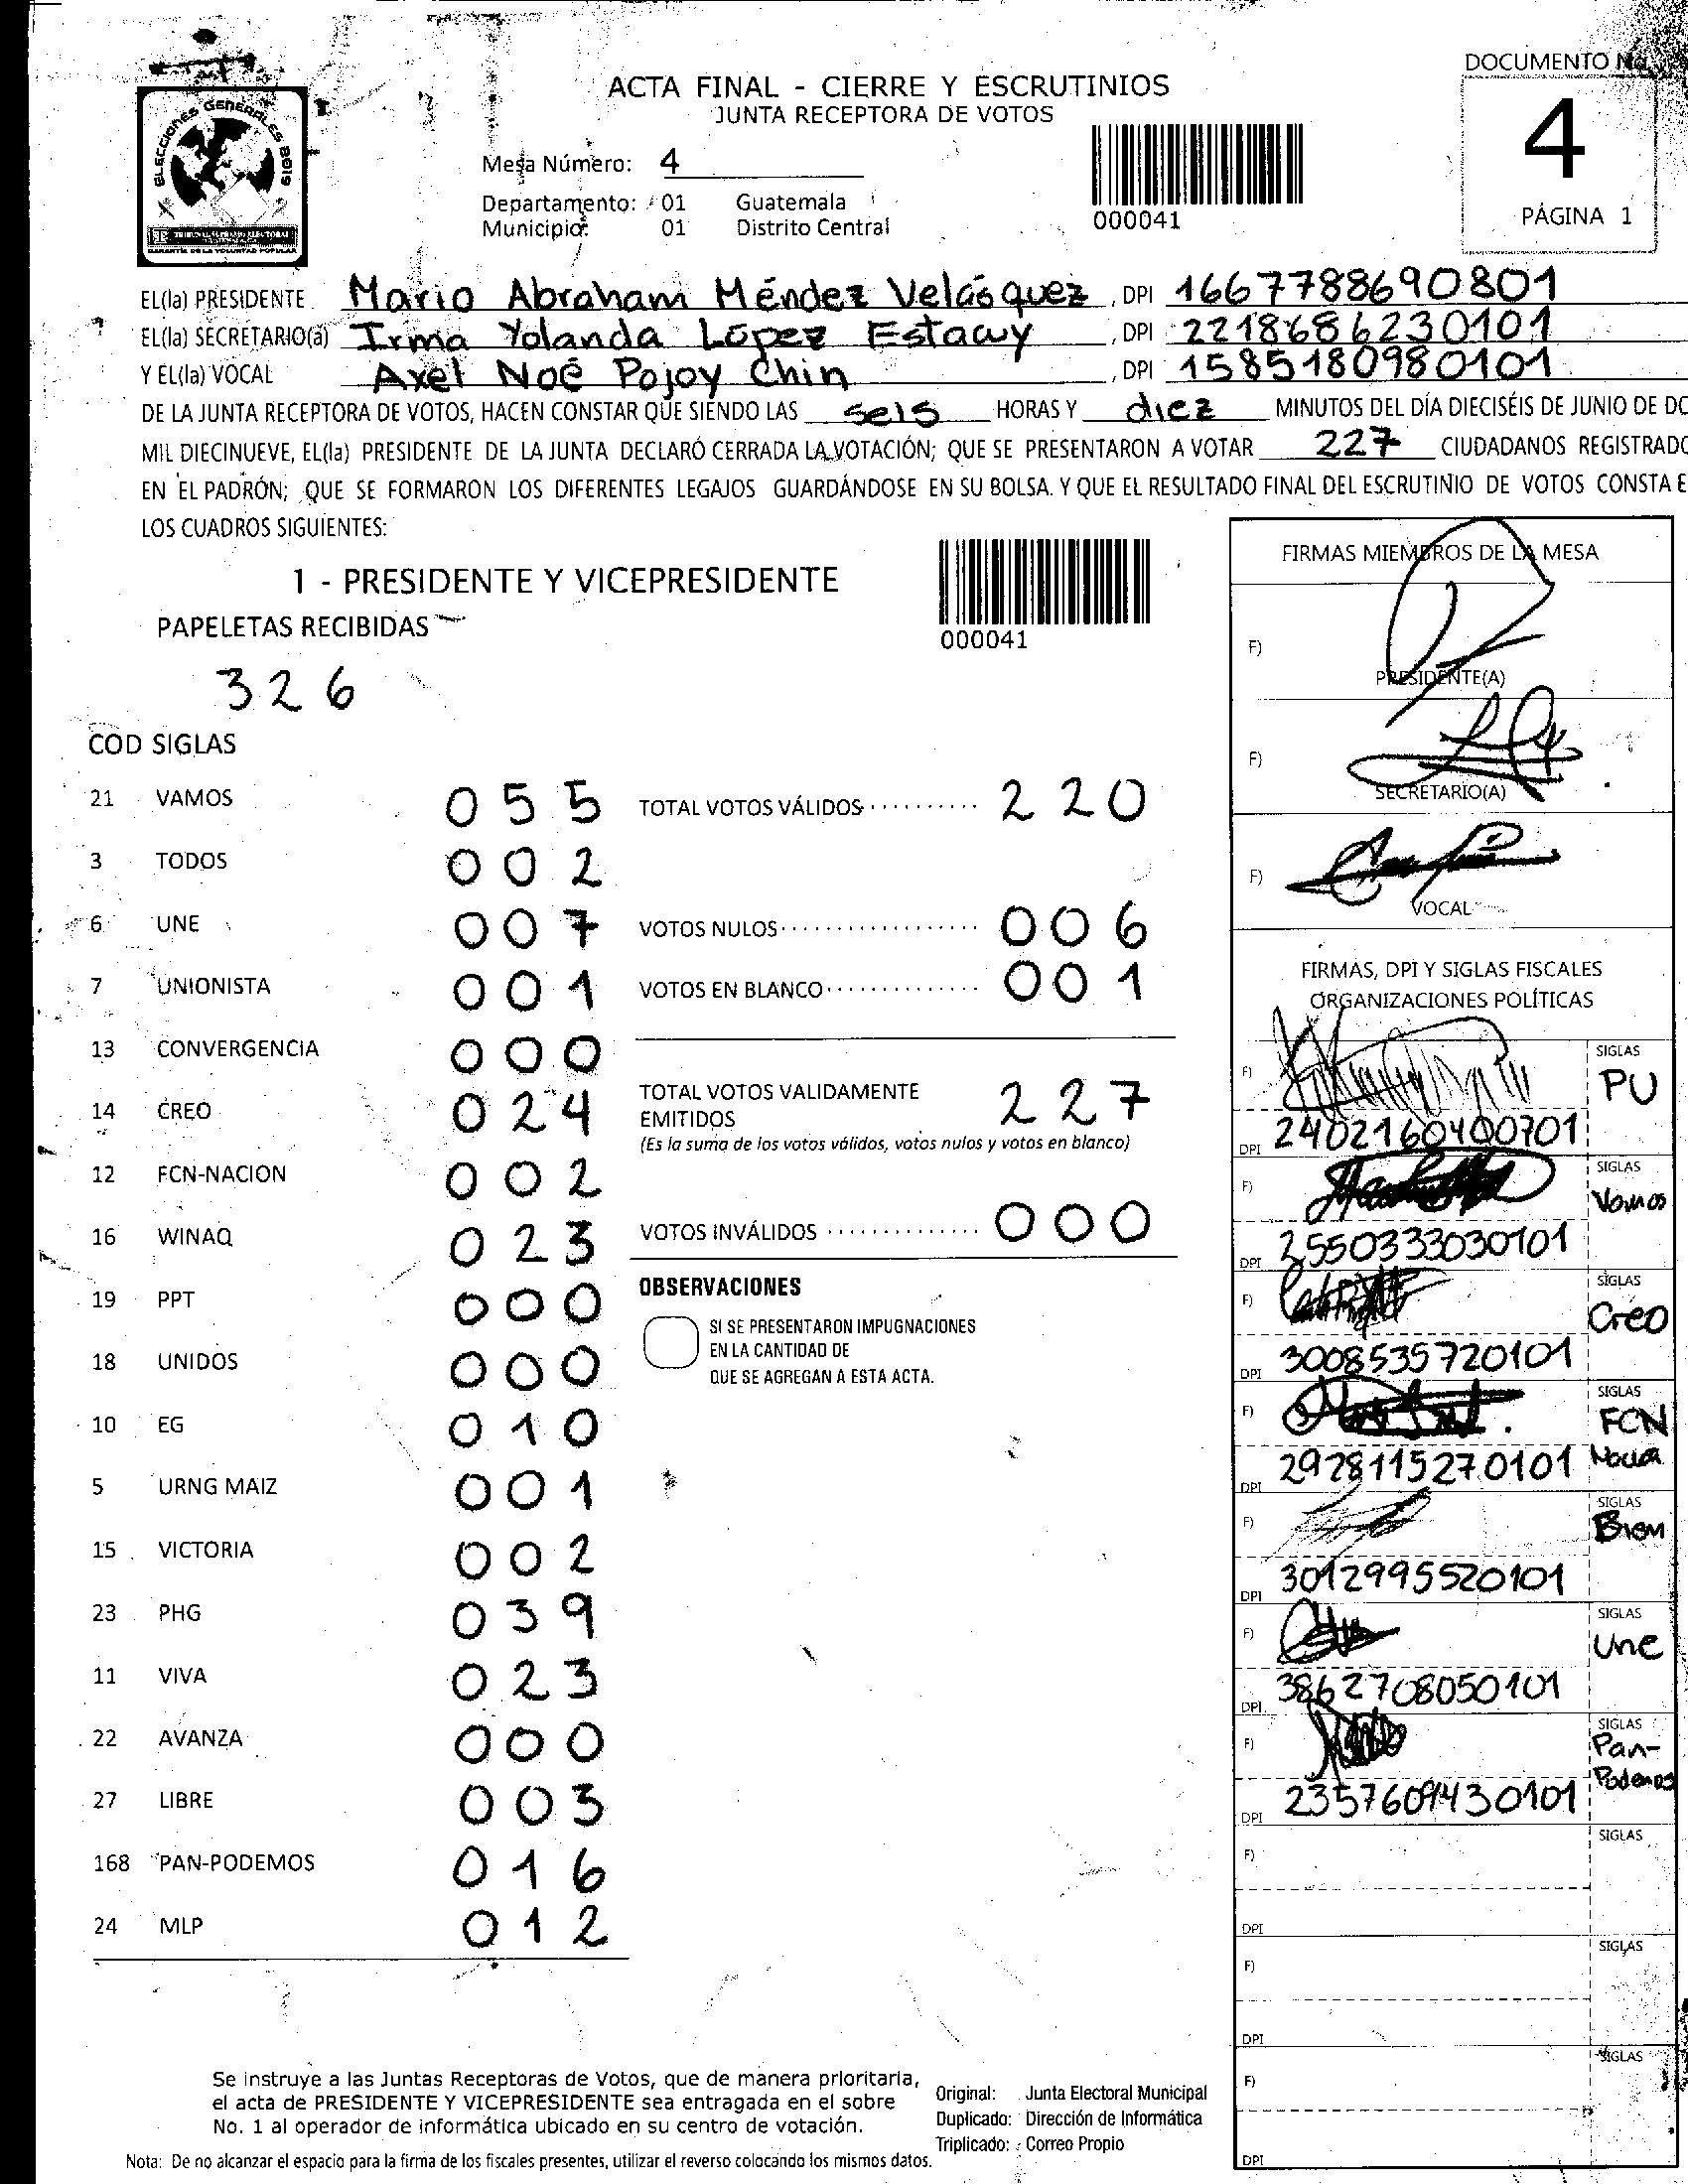 DOCUMENTO No.
4
PÁGINA 1
ELECCIONES GENERALES 2019
TRIBUNAL SUPREMO ELECTORAL
GARANTÍA DE LA VOLUNTAD POPULAR
ACTA FINAL - CIERRE Y ESCRUTINIOS
JUNTA RECEPTORA DE VOTOS
Mesa Número: 4
Departamento: 01 Guatemala
Municipio: 01 Distrito Central
000041
EL(la) PRESIDENTE Mario Abraham Méndez Velásquez, DPI 1667788690801
EL(la) SECRETARIO(a) Irma Yolanda López Estacuy, DPI 2218686230101
Y EL(la) VOCAL Axel Noé Pojoy Chin, DPI 1585180980101
DE LA JUNTA RECEPTORA DE VOTOS, HACEN CONSTAR QUE SIENDO LAS seis HORAS Y diez MINUTOS DEL DÍA DIECISÉIS DE JUNIO DE DO
MIL DIECINUEVE, EL(la) PRESIDENTE DE LA JUNTA DECLARÓ CERRADA LA VOTACIÓN; QUE SE PRESENTARON A VOTAR 227 CIUDADANOS REGISTRADO
EN EL PADRÓN; QUE SE FORMARON LOS DIFERENTES LEGAJOS GUARDÁNDOSE EN SU BOLSA. Y QUE EL RESULTADO FINAL DEL ESCRUTINIO DE VOTOS CONSTA E
LOS CUADROS SIGUIENTES:
1 - PRESIDENTE Y VICEPRESIDENTE
PAPELETAS RECIBIDAS
326
000041
COD SIGLAS
21 VAMOS 055
3 TODOS 002
6 UNE 007
7 UNIONISTA 001
13 CONVERGENCIA 000
14 CREO 024
12 FCN-NACION 002
16 WINAQ 023
19 PPT 000
18 UNIDOS 000
10 EG 010
5 URNG MAIZ 001
15 VICTORIA 002
23 PHG 039
11 VIVA 023
22 AVANZA 000
27 LIBRE 003
168 PAN-PODEMOS 016
24 MLP 012
TOTAL VOTOS VÁLIDOS 220
VOTOS NULOS 006
VOTOS EN BLANCO 001
TOTAL VOTOS VALIDAMENTE
EMITIDOS 227
(Es la suma de los votos válidos, votos nulos y votos en blanco)
VOTOS INVÁLIDOS 000
OBSERVACIONES
SI SE PRESENTARON IMPUGNACIONES
EN LA CANTIDAD DE
QUE SE AGREGAN A ESTA ACTA.
FIRMAS MIEMBROS DE LA MESA
F)
PRESIDENTE(A)
F)
SECRETARIO(A)
F)
VOCAL
FIRMAS, DPI Y SIGLAS FISCALES
ORGANIZACIONES POLÍTICAS
F) SIGLAS PU
DPI 2402160400701
F) SIGLAS Vamos
DPI 2550333030101
F) SIGLAS Creo
DPI 3008535720101
F) SIGLAS FCN
DPI 2928115270101
F) SIGLAS Bien
DPI 3012995520101
F) SIGLAS Une
DPI 3862708050101
F) SIGLAS Pan-
Podemos
DPI 2357609430101
F) SIGLAS
DPI
F) SIGLAS
DPI
F) SIGLAS
DPI
Se instruye a las Juntas Receptoras de Votos, que de manera prioritaria,
el acta de PRESIDENTE Y VICEPRESIDENTE sea entragada en el sobre
No. 1 al operador de informática ubicado en su centro de votación.
Original: Junta Electoral Municipal
Duplicado: Dirección de Informática
Triplicado: Correo Propio
Nota: De no alcanzar el espacio para la firma de los fiscales presentes, utilizar el reverso colocando los mismos datos.